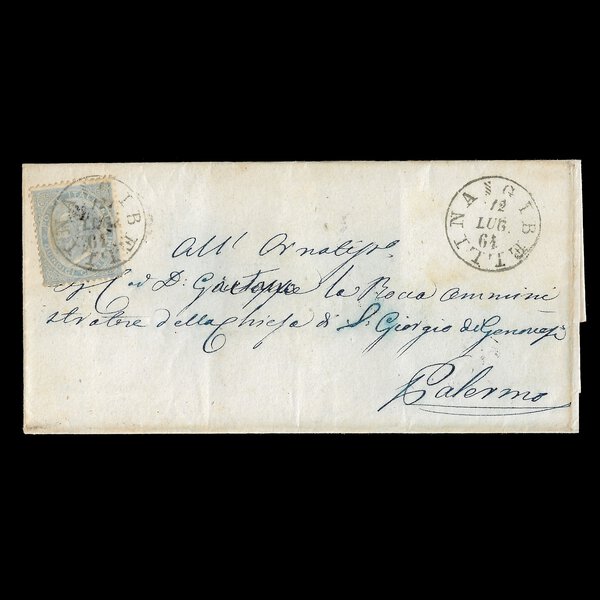 GIBELLINA
12
LUG.
64
All' Ornatiss.
D. Gaetano La Rocca Ammini
stratore della Chiesa di S. Giorgio di Genovesi
Palermo